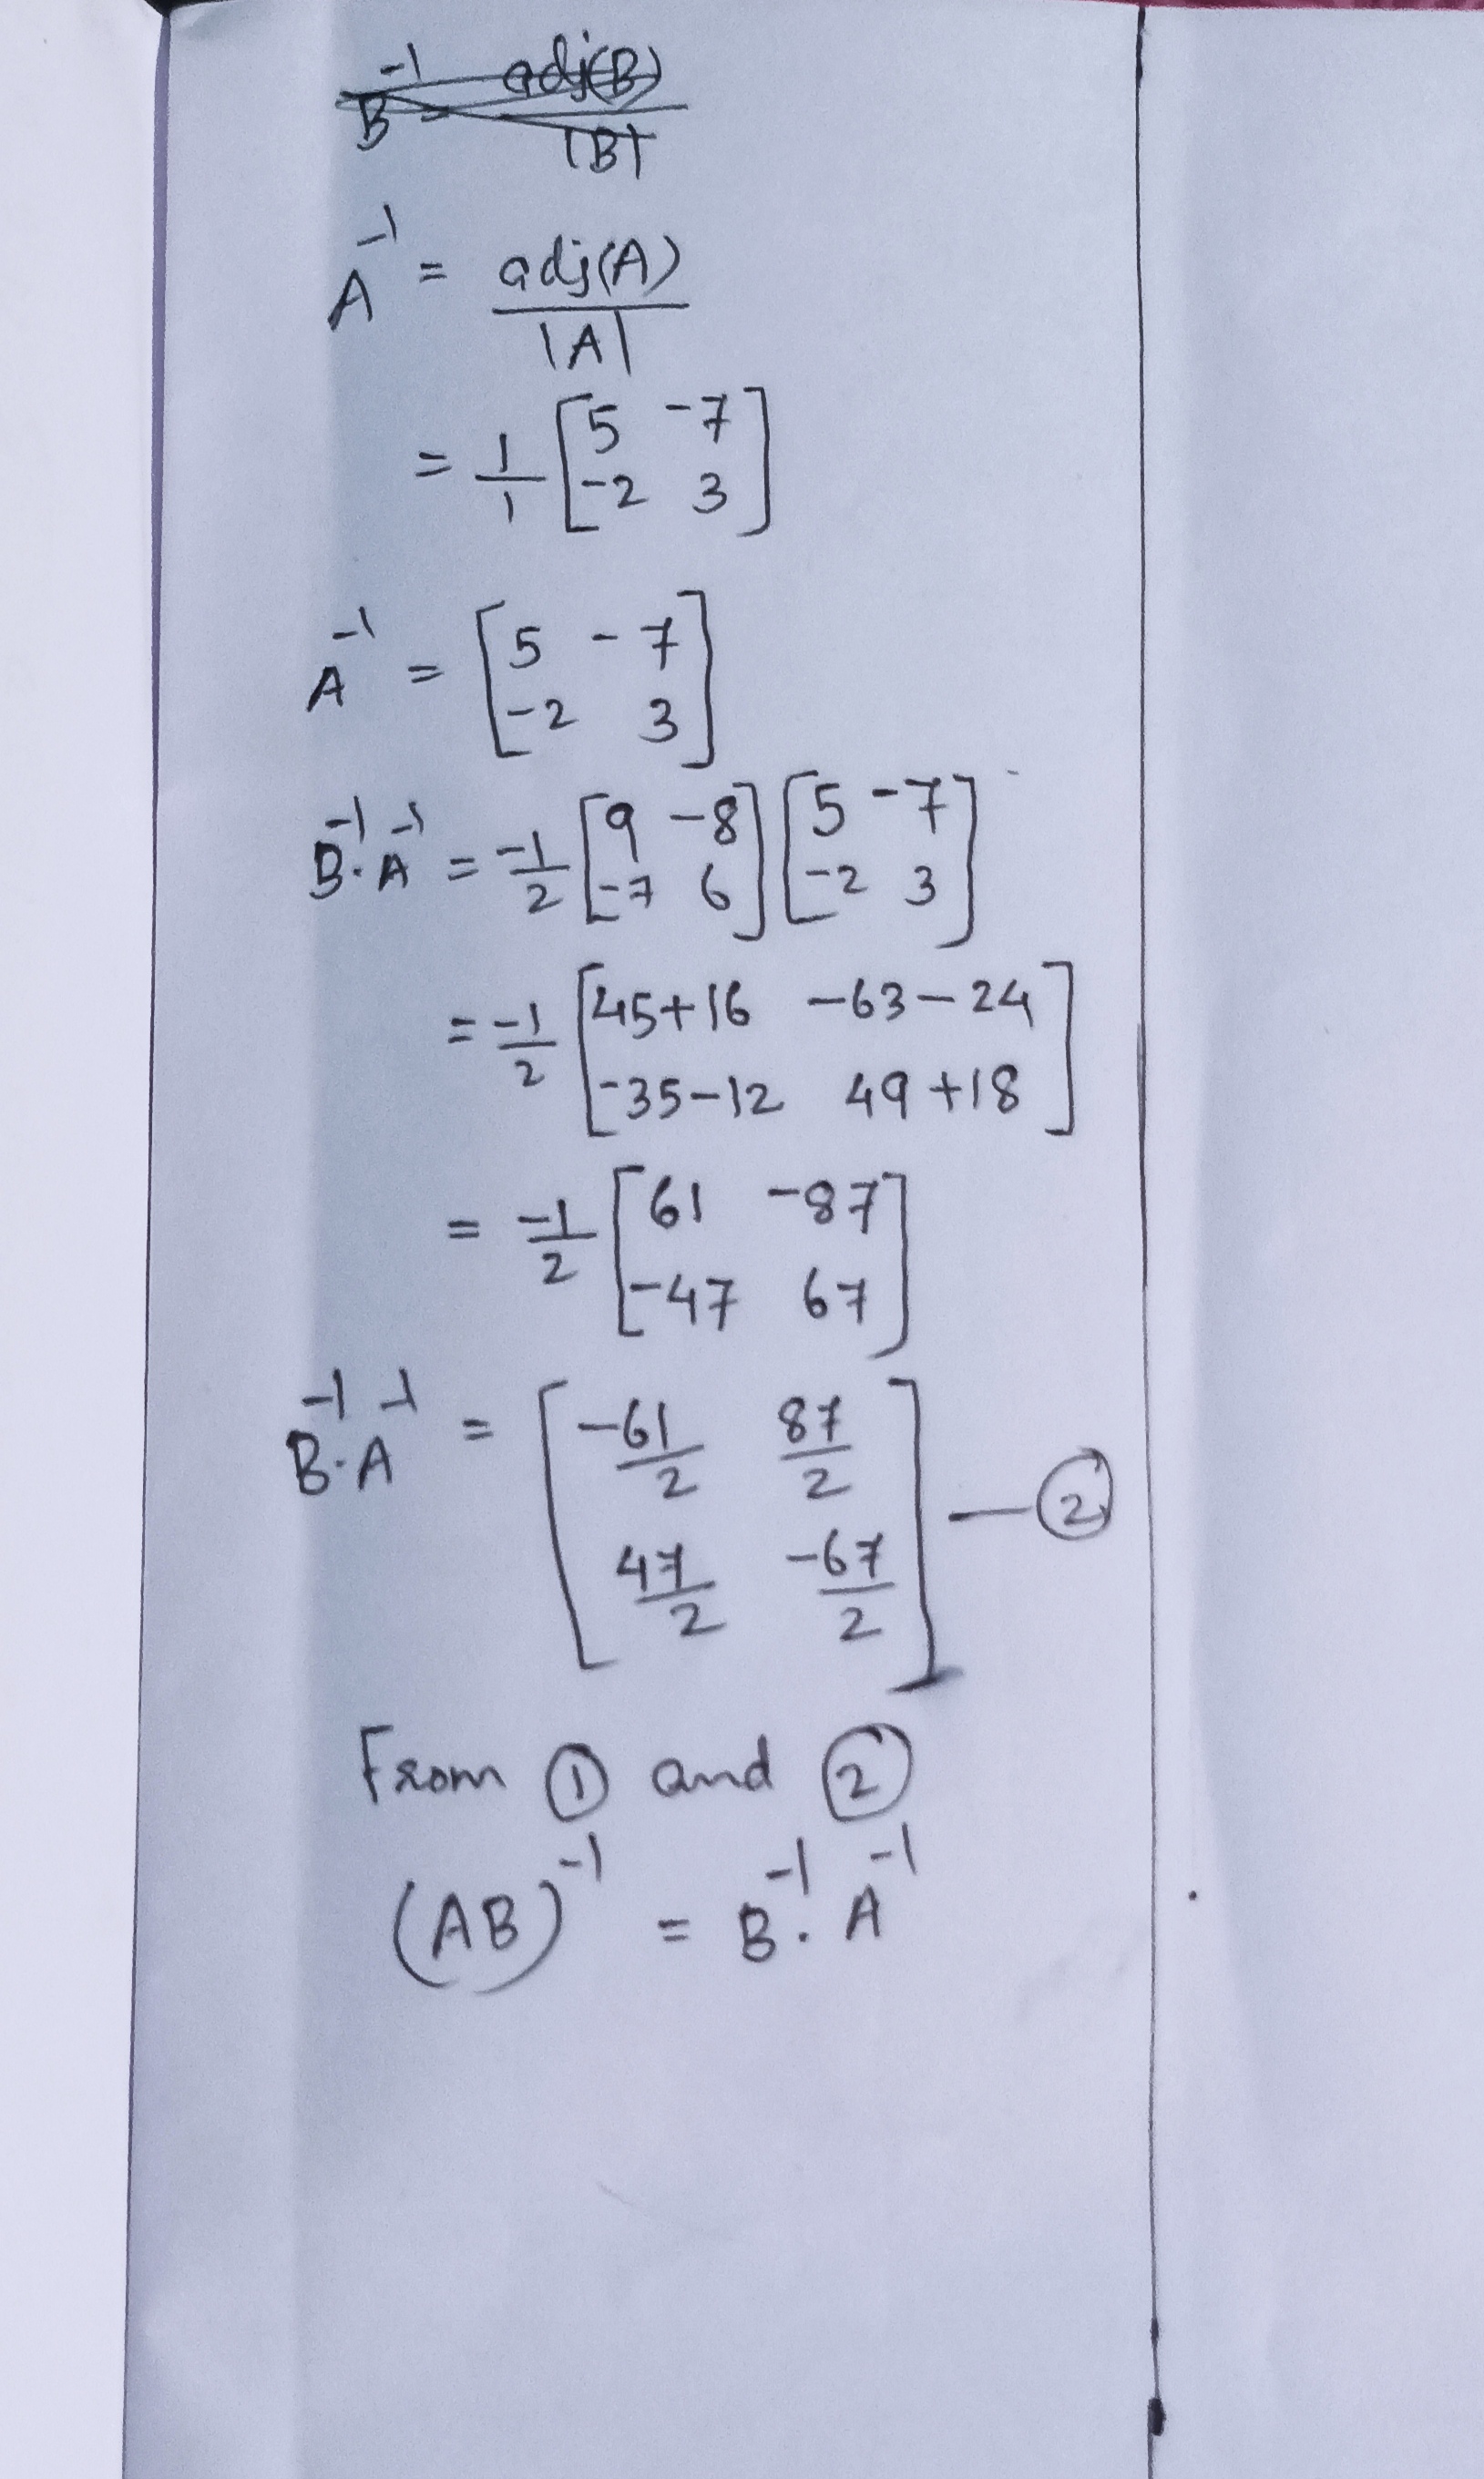 B⁻¹ = adj(B) / |B|
A⁻¹ = adj(A) / |A|
= 1/1 [5 -7
-2 3]
A⁻¹ = [5 -7
-2 3]
B⁻¹·A⁻¹ = -1/2 [9 -8
-7 6] [5 -7
-2 3]
= -1/2 [45+16 -63-24
-35-12 49+18]
= -1/2 [61 -87
-47 67]
B⁻¹·A⁻¹ = [-61/2 87/2
47/2 -67/2] — ②
From ① and ②
(AB)⁻¹ = B⁻¹·A⁻¹